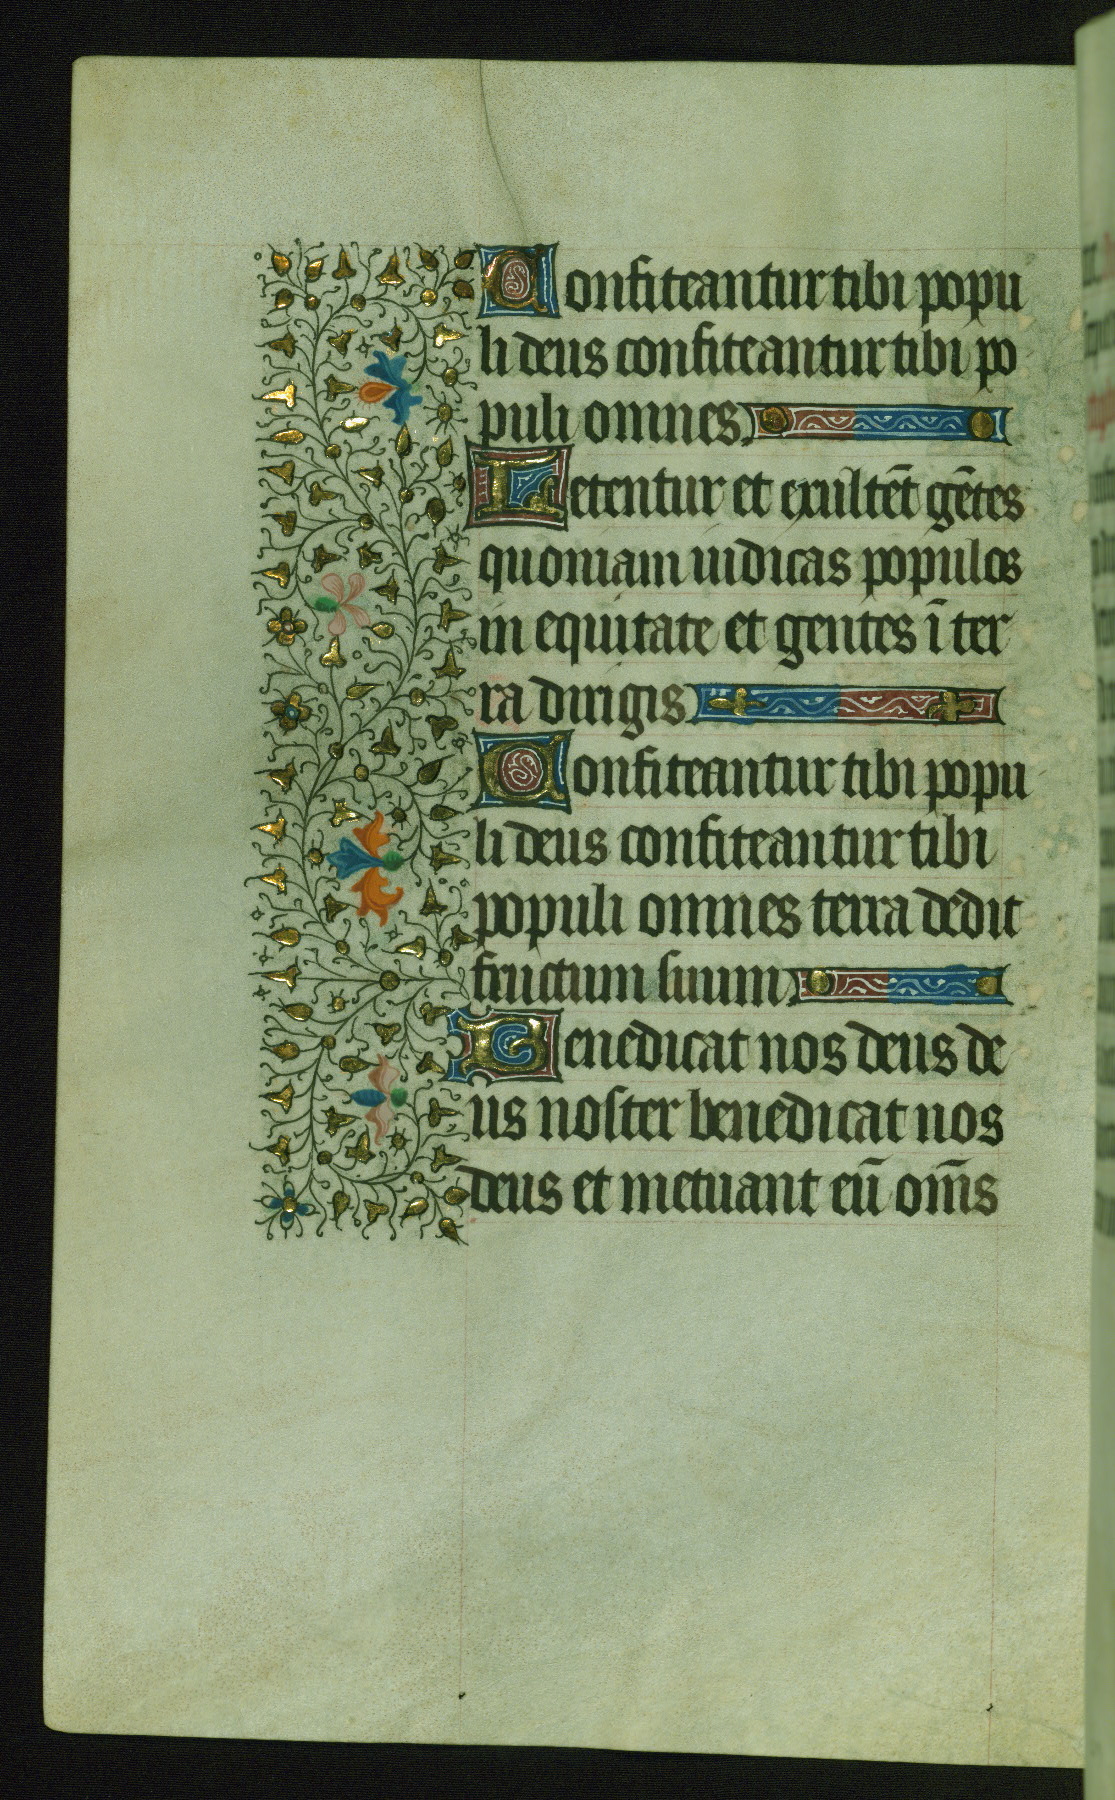 Confiteantur tibi popu
li deus confiteantur tibi po
puli omnes.
Letentur et exultēt gētes
quoniam iudicas populos
in equitate et gentes ī ter
ra dirigis
Confiteantur tibi popu
li deus confiteantur tibi
populi omnes terra dedit
fructum suum
Benedicat nos deus de
us noster benedicat nos
deus et metuant eū om̄s